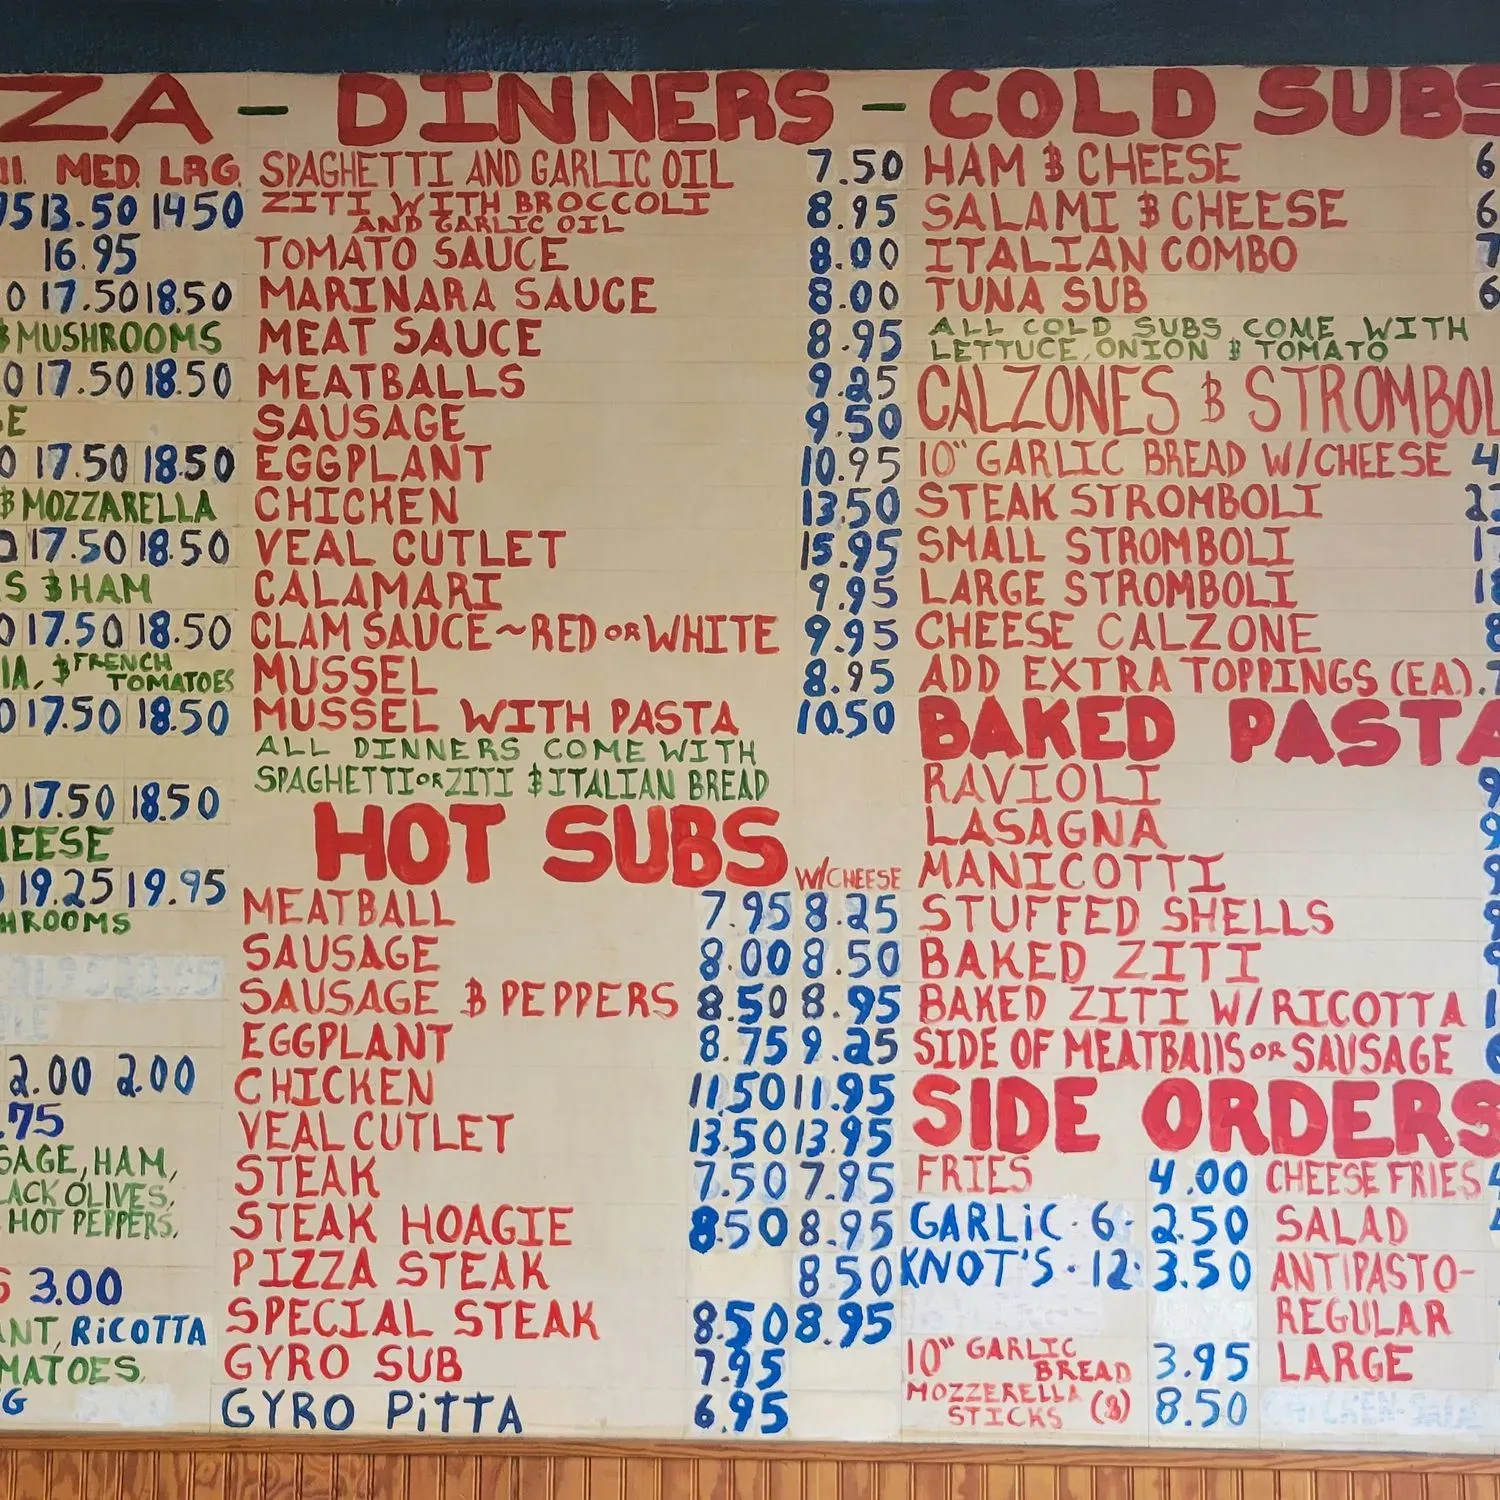 ZA - DINNERS - COLD SUBS
MED. LRG.
13.50 14.50
16.95
17.50 18.50
& MUSHROOMS
17.50 18.50
17.50 18.50
& MOZZARELLA
17.50 18.50
& HAM
17.50 18.50
& FRENCH
TOMATOES
17.50 18.50
17.50 18.50
19.25 19.95
2.00 2.00
.75
HAM,
OLIVES,
HOT PEPPERS,
3.00
RiCOTTA
SPAGHETTI AND GARLIC OIL 7.50
ZITI WITH BROCCOLI 8.95
AND GARLIC OIL
TOMATO SAUCE 8.00
MARINARA SAUCE 8.00
MEAT SAUCE 8.95
MEATBALLS 9.25
SAUSAGE 9.50
EGGPLANT 10.95
CHICKEN 13.50
VEAL CUTLET 15.95
CALAMARI 9.95
CLAM SAUCE~RED OR WHITE 9.95
MUSSEL 8.95
MUSSEL WITH PASTA 10.50
ALL DINNERS COME WITH
SPAGHETTI OR ZITI & ITALIAN BREAD
HOT SUBS W/CHEESE
MEATBALL 7.95 8.25
SAUSAGE 8.00 8.50
SAUSAGE & PEPPERS 8.50 8.95
EGGPLANT 8.75 9.25
CHICKEN 11.50 11.95
VEAL CUTLET 13.50 13.95
STEAK 7.50 7.95
STEAK HOAGIE 8.50 8.95
PIZZA STEAK 8.50
SPECIAL STEAK 8.50 8.95
GYRO SUB 7.95
GYRO PiTTA 6.95
HAM & CHEESE 6
SALAMI & CHEESE 6
ITALIAN COMBO 7
TUNA SUB 6
ALL COLD SUBS COME WITH
LETTUCE, ONION & TOMATO
CALZONES & STROMBOL
10" GARLIC BREAD W/CHEESE 4
STEAK STROMBOLI
SMALL STROMBOLI
LARGE STROMBOLI
CHEESE CALZONE 8
ADD EXTRA TOPPINGS (EA.)
BAKED PASTA
RAVIOLI 9
LASAGNA 9
MANICOTTI 9
STUFFED SHELLS 9
BAKED ZITI
BAKED ZITI W/RICOTTA
SIDE OF MEATBAllS OR SAUSAGE
SIDE ORDERS
FRIES 4.00 CHEESE FRIES
GARLiC · 6 · 2.50 SALAD
KNOT'S · 12 · 3.50 ANTIPASTO-
REGULAR
10" GARLIC
BREAD 3.95 LARGE
MOZZERELLA
STICKS (8) 8.50